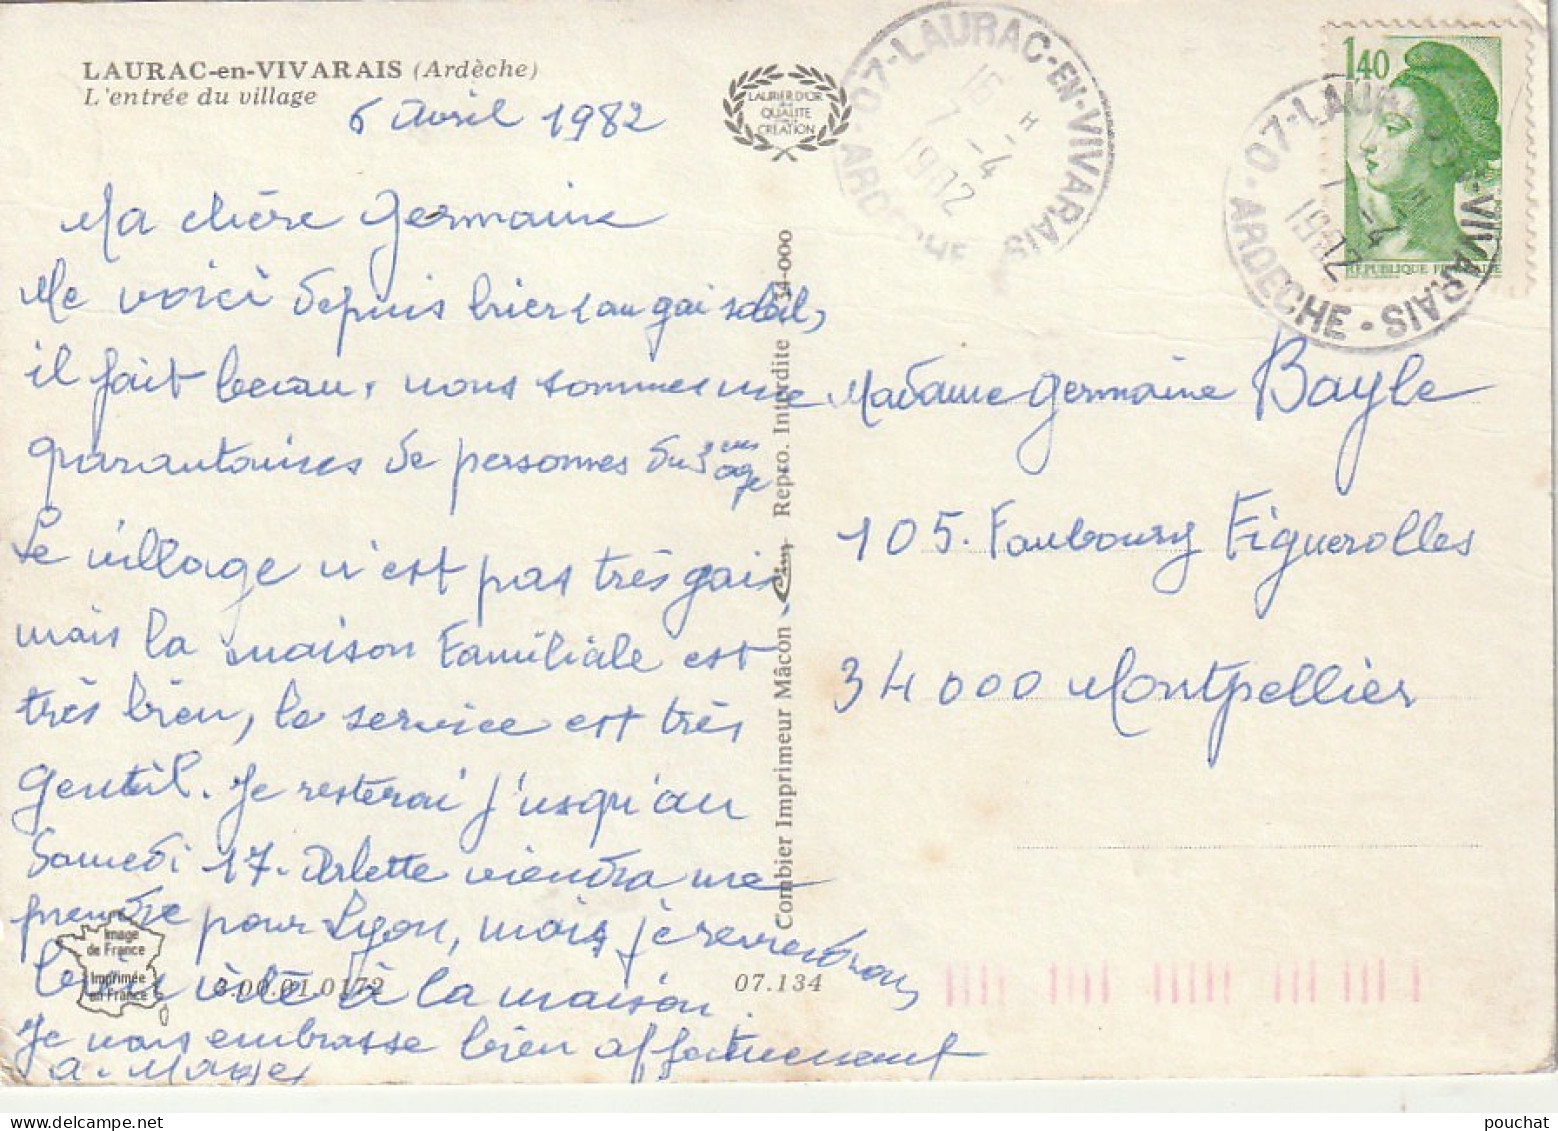 LAURAC-en-VIVARAIS (Ardèche)
L'entrée du village
6 Avril 1982
LAURIER D'OR
DE LA
QUALITE
CREATION
07-LAURAC-EN-VIVARAIS
ARDECHE
16 H
7 -4
1982
1,40
REPUBLIQUE FRANCAISE
07-LAURAC-EN-VIVARAIS
ARDECHE
7 -4
1982
Ma chère Germaine
Me voici depuis hier au gai soleil,
il fait beau, nous sommes une
quarantaines de personnes du 3ème
age.
Le village n'est pas très gai,
mais la maison Familiale est
très bien, le service est très
gentil. Je resterai j'usqu'au
Samedi 17. Arlette viendra me
prendre pour Lyon, mais je reviendrai
bien vite à la maison.
Je vous embrasse bien affectueusement
Madame Germaine Bayle
105. Faubourg Figuerolles
34000 Montpellier
Combier Imprimeur Mâcon Cim Repro. Interdite 34-000
Image
de France
Imprimée
en France
3.00.01.0172
07.134
pouchat